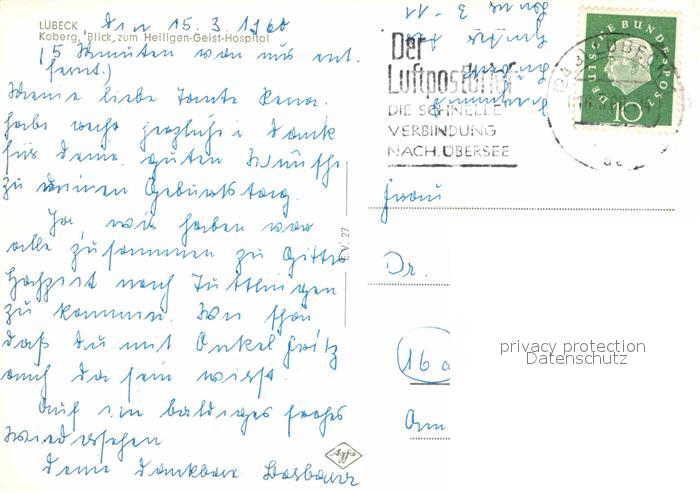 LÜBECK
Koberg, Blick zum Heiligen-Geist-Hospital
den 15.3.1960
(5 Minuten von uns ent.
fernt.)
Meine liebe Tante
habe recht herzlichen Dank
für deine guten Wünsche
zu meinem Geburtstag.
Ja, wir haben vor
alle zusammen zu
Hochzeit nach Tuttlingen
zu kommen. Wie schön
daß du mit Onkel Fritz
auch da sein wirst.
Auf ein baldiges frohes
Wiedersehen
deine dankbare Barbara
E.V. 27
Agfa
Der
Luftpostbrief
DIE SCHNELLE
VERBINDUNG
NACH ÜBERSEE
DEUTSCHE BUNDESPOST
10
LÜBECK
Frau
Dr.
(16a
Am
privacy protection
Datenschutz